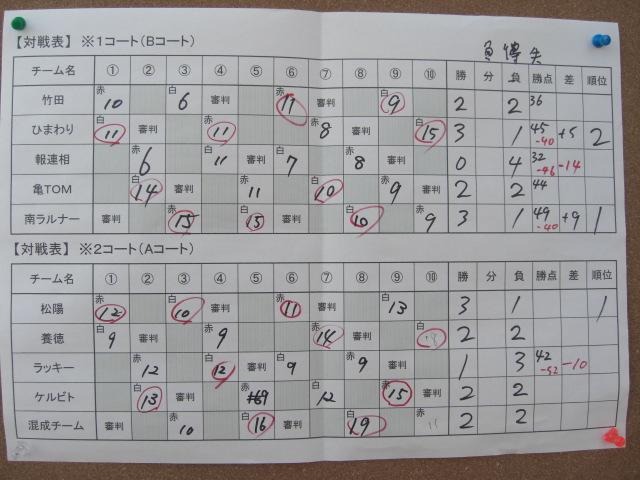 【対戦表】 ※1コート(Bコート) 負 得 失
チーム名 ① ② ③ ④ ⑤ ⑥ ⑦ ⑧ ⑨ ⑩ 勝 分 負 勝点 差 順位
竹田 赤 10 白 6 審判 赤 11 審判 白 9 2 2 36
ひまわり 白 11 審判 白 11 赤 8 審判 白 15 3 1 45 -40 +5 2
報連相 赤 6 赤 11 審判 白 7 赤 8 審判 0 4 32 -46 -14
亀TOM 白 14 審判 赤 11 白 10 審判 赤 9 審判 2 2 44
南ラルナー 審判 赤 15 白 15 審判 白 10 赤 9 3 1 49 -40 +9 1
【対戦表】 ※2コート(Aコート)
チーム名 ① ② ③ ④ ⑤ ⑥ ⑦ ⑧ ⑨ ⑩ 勝 分 負 勝点 差 順位
松陽 赤 12 白 10 審判 赤 11 審判 白 13 3 1 1
養徳 白 9 審判 赤 9 赤 14 審判 白 2 2
ラッキー 赤 12 白 12 審判 白 9 赤 9 審判 1 3 42 -52 -10
ケルビト 白 13 審判 赤 9 白 12 赤 15 審判 2 2
混成チーム 審判 赤 10 白 16 審判 白 19 赤 11 2 2